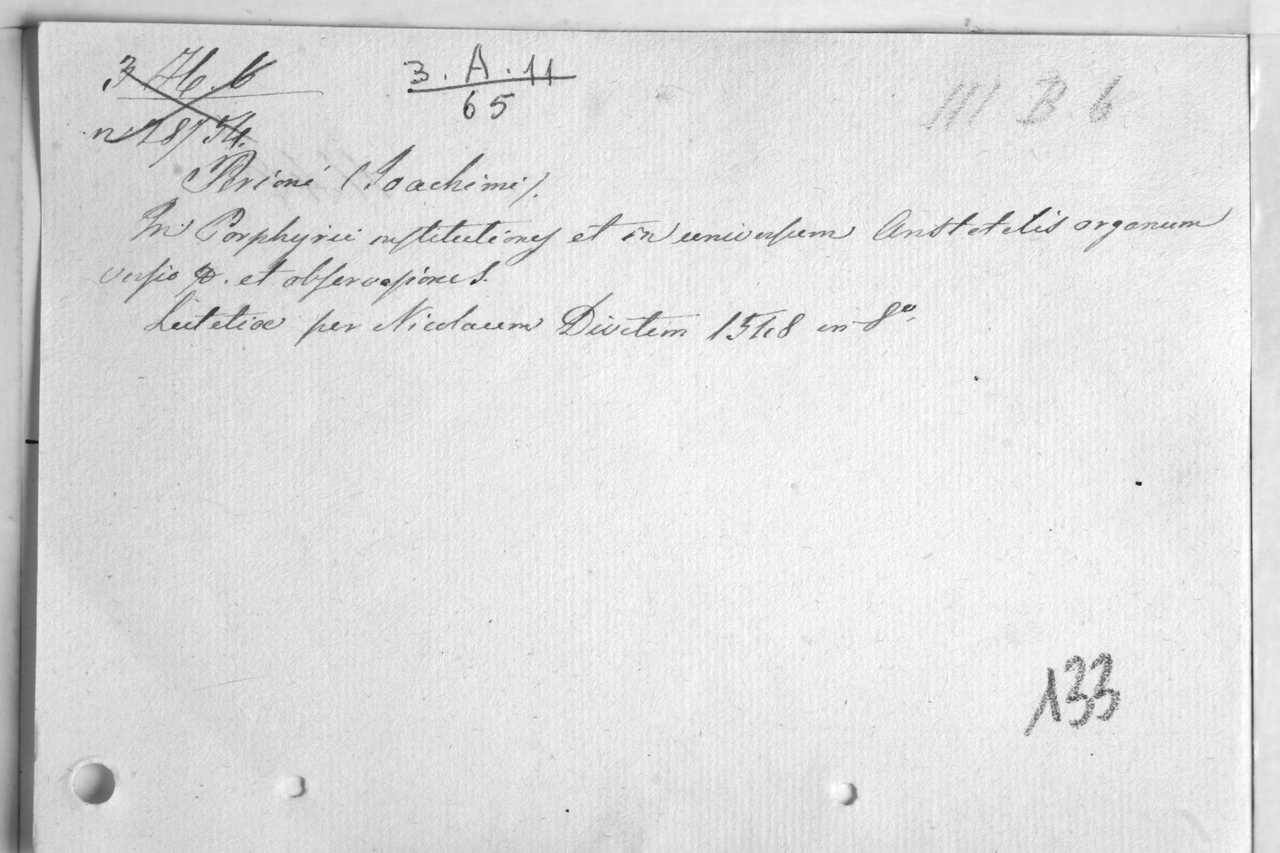 3. A. 11
65
III B 6
Perioni (Joachimi).
In Porphyrii institutiones et in universum Aristotelis organum
versio et observationes.
Lutetiae per Nicolaum Divitem 1548 in 8o.
133